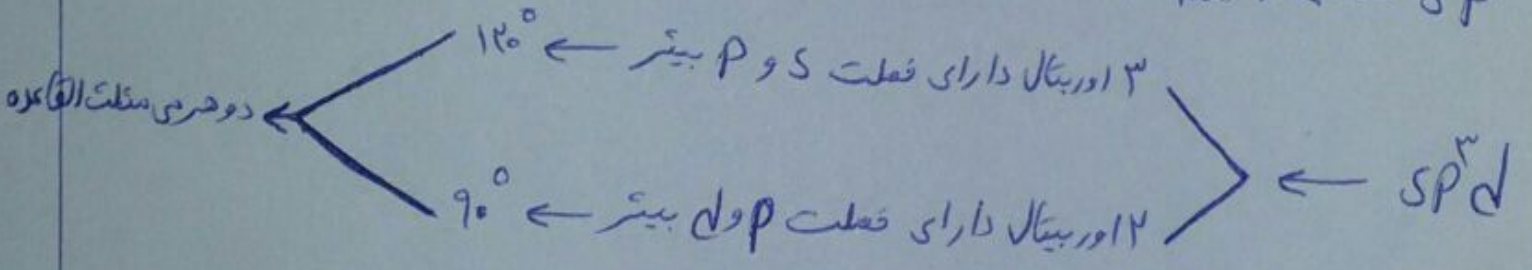 ۳ اوربیتال دارای خصلت s و p بیشتر ← ۱۲۰°
sp³d ←
۲ اوربیتال دارای خصلت p و d بیشتر ← ۹۰°
← دو هرمی مثلث القاعده